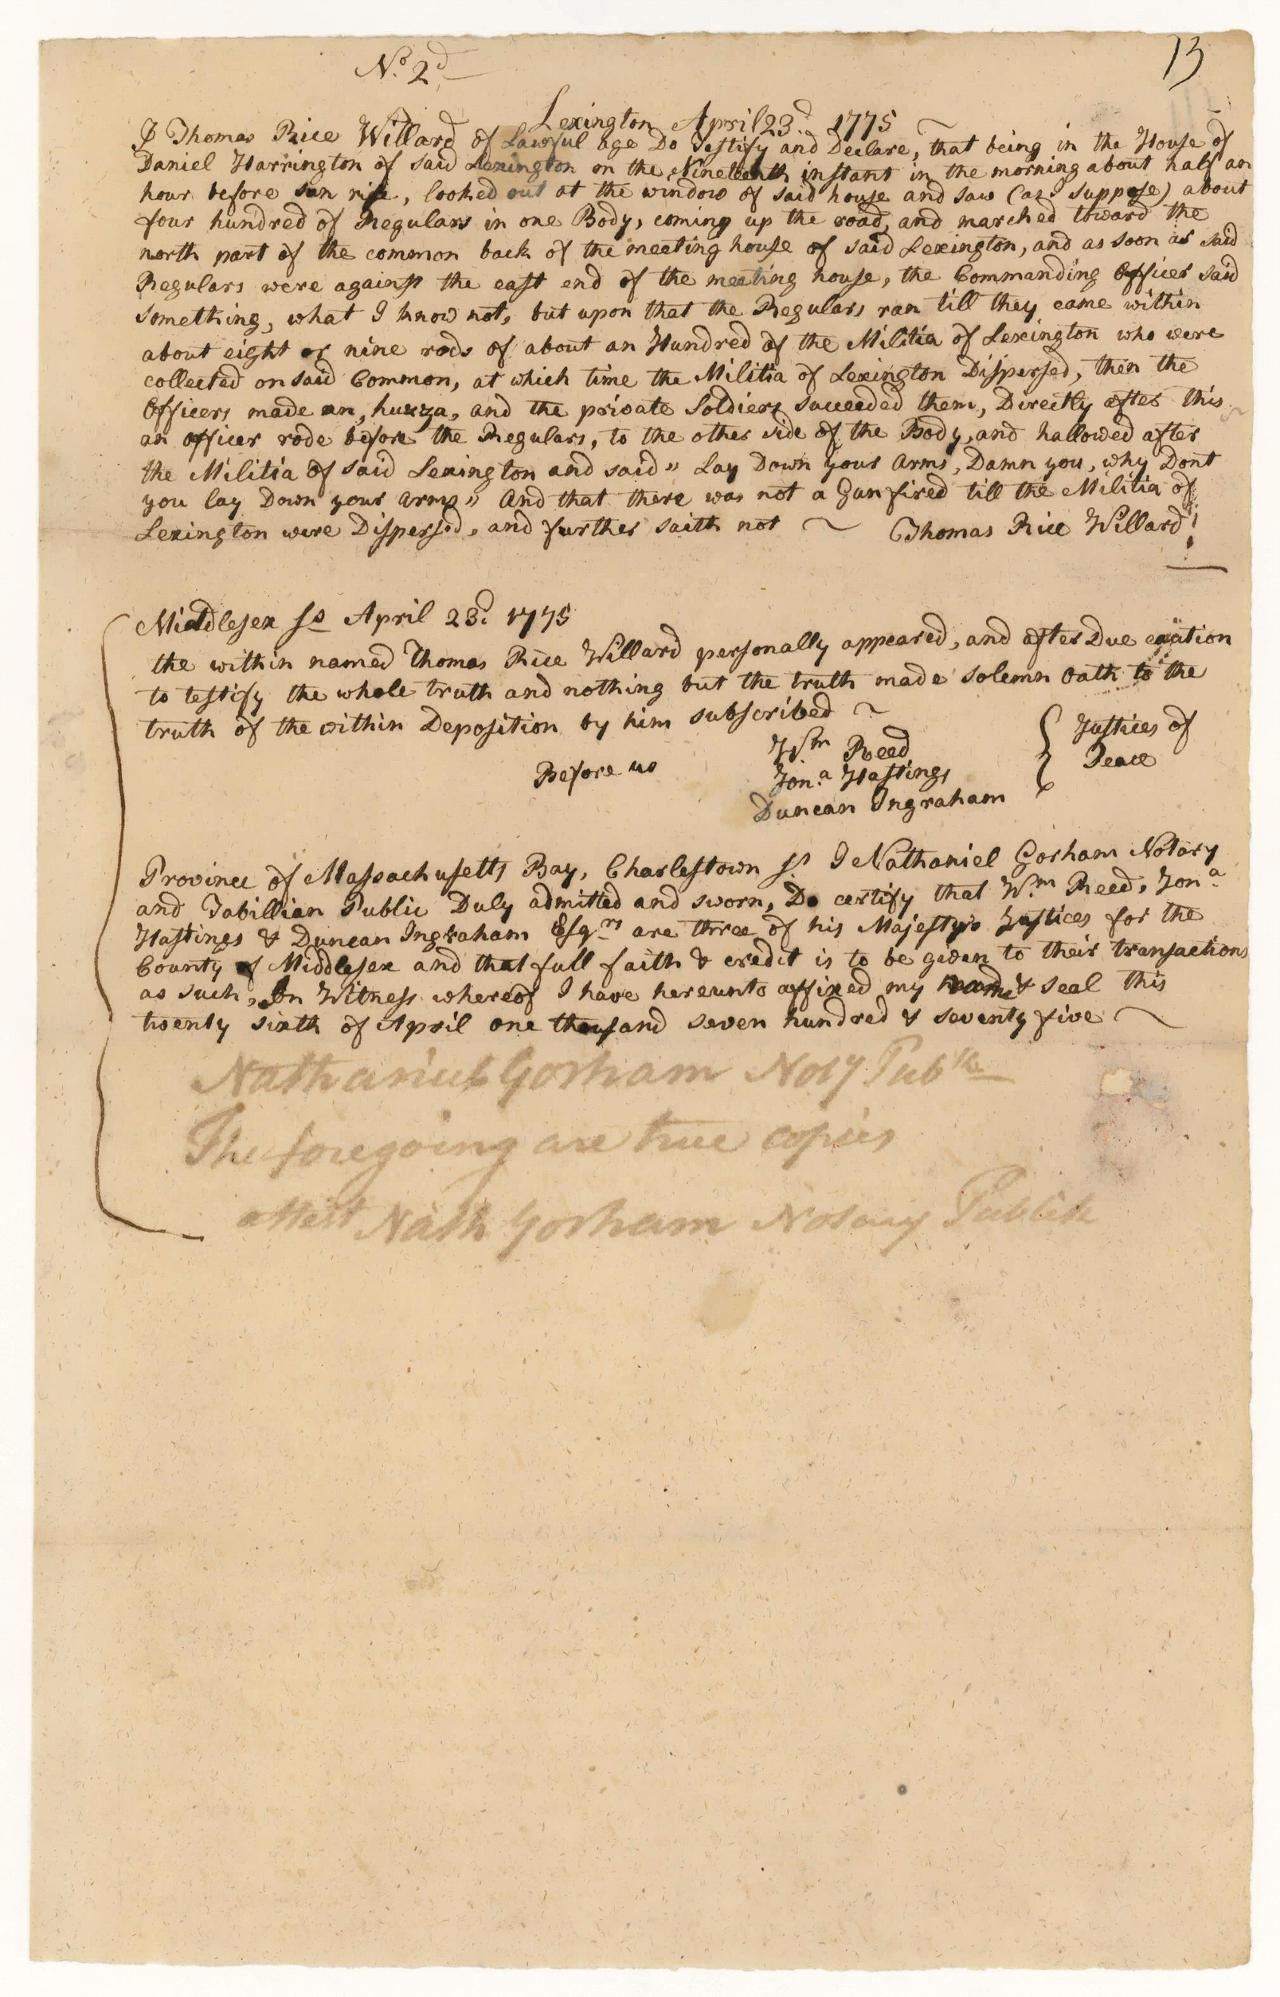 No. 2d
13
Lexington April 23d. 1775
I Thomas Rice Willard of Lawful age Do Testify and Declare, that being in the House of
Daniel Harrington of said Lexington on the Nineteenth instant in the morning about half an
hour before sun rise, looked out at the window of said house and saw (as I suppose) about
four hundred of Regulars in one Body, coming up the road, and marched toward the
north part of the common back of the meeting house of said Lexington, and as soon as said
Regulars were against the east end of the meeting house, the Commanding Officer said
something, what I know not, but upon that the Regulars ran till they came within
about eight or nine rods of about an Hundred of the Militia of Lexington who were
collected on said Common, at which time the Militia of Lexington Dispersed, then the
Officers made an, huzza, and the private Soldiers succeeded them, Directly after this
an officer rode before the Regulars, to the other side of the Body, and hallowed after
the Militia of said Lexington and said " Lay Down your Arms, Damn you, why Dont
you lay Down your arms" And that there was not a Gun fired till the Militia of
Lexington were Dispersed, and further saith not ~ Thomas Rice Willard
Middlesex ss April 23d. 1775
the within named Thomas Rice Willard personally appeared, and after Due caution
to testify the whole truth and nothing but the truth made solemn oath to the
truth of the within Deposition by him subscribed ~
Before us
Wm Reed
Jona. Hastings
Duncan Ingraham
Justices of
Peace
Province of Massachusetts Bay, Charlestown ss I Nathaniel Gorham Notary
and Tabillian Public Duly admitted and sworn, Do certify that Wm. Reed, Jona.
Hastings & Duncan Ingraham Esqrs are three of his Majesty's Justices for the
County of Middlesex and that full faith & credit is to be given to their transactions
as such, In Witness whereof I have hereunto affixed my name & seal this
twenty sixth of April one thousand seven hundred & seventy five ~
Nathaniel Gorham Noty Pubk
The foregoing are true copies
attest Nath Gorham Notary Publick